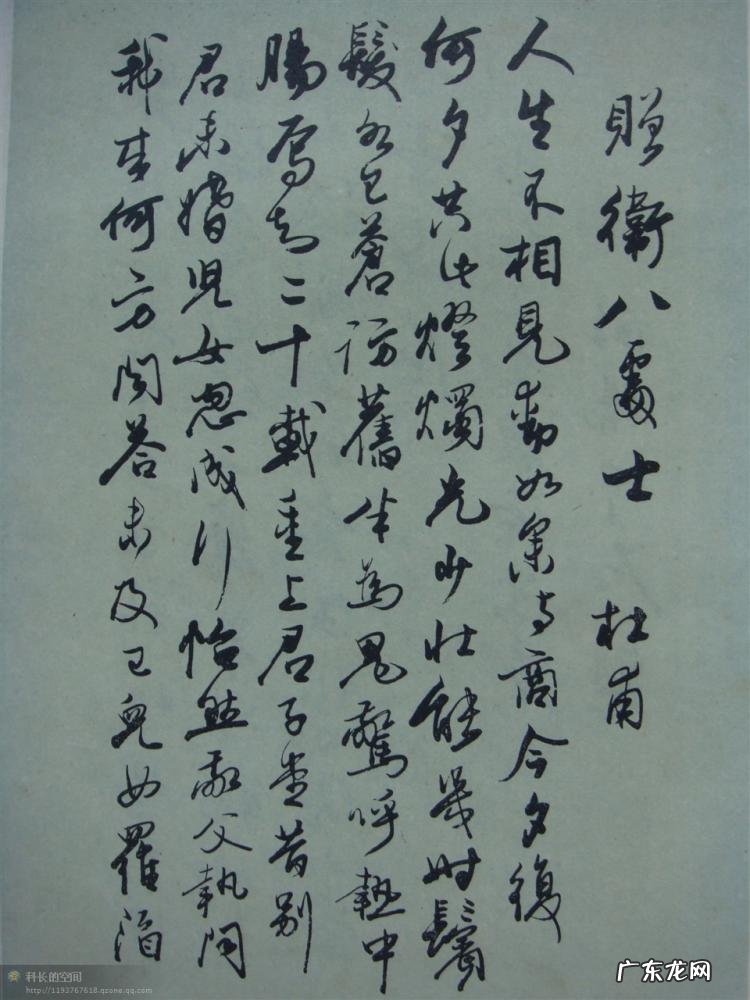 贈衛八處士 杜甫
人生不相見動如參与商今夕復
何夕共此燈燭光少壯能幾時鬢
髮各已蒼訪舊半為鬼驚呼熱中
腸焉知二十載重上君子堂昔別
君未婚兒女忽成行怡然敬父執問
我來何方問答未及已兒女羅酒
科长的空间
http://1193767618.qzone.qq.com
广东龙网